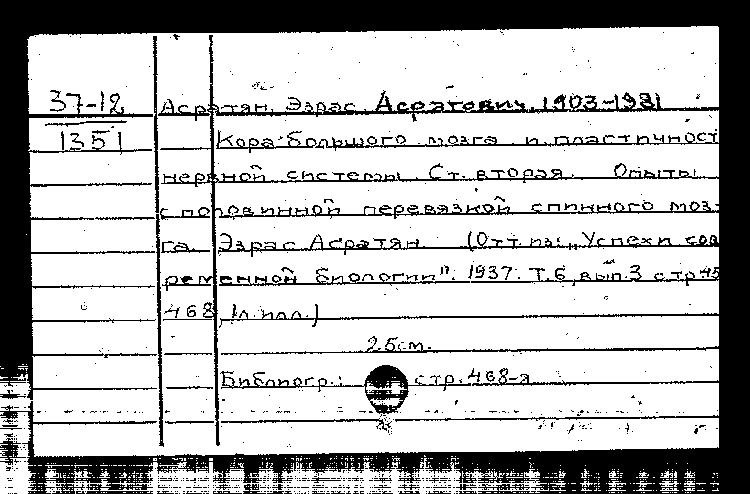 37-12 Асратян, Эзрас Асратович, 1903-1981
1351 Кора большого мозга и пластичност
нервной системы. Ст. вторая. Опыты
с половинной перевязкой спинного моз-
га. Эзрас Асратян. (Отт. из: „Успехи сов
ременной биологии". 1937. Т.6, вып.3 стр 45
468, 1л. илл.)
25см.
Библиогр.: стр. 468-я